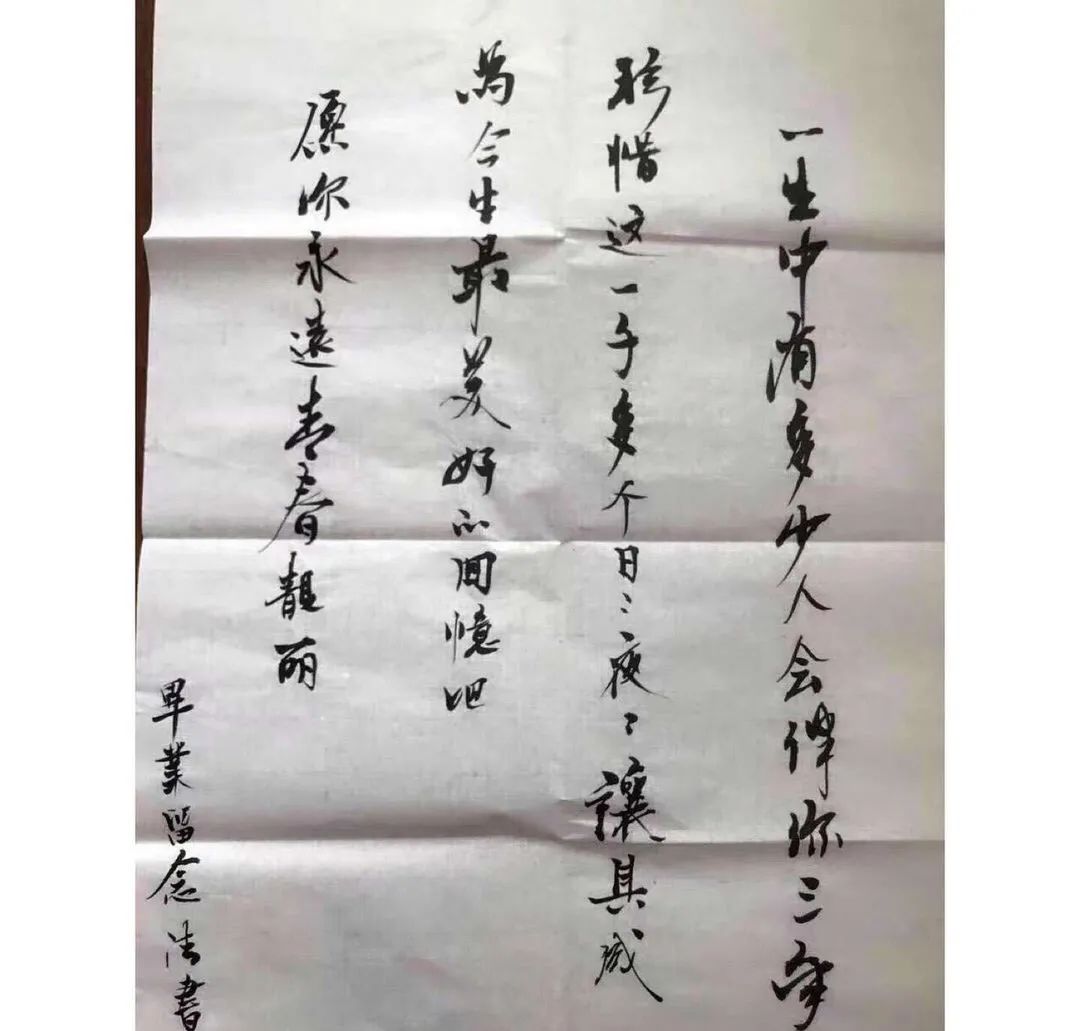 一生中有多少人会伴你三年
珍惜这一千多个日〻夜〻讓其成
為今生最美好的回憶吧
愿你永遠青春靓丽
畢業留念 浩書